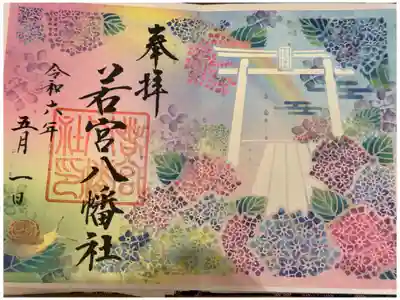 奉拝
若宮八幡社
令和六年
五月一日